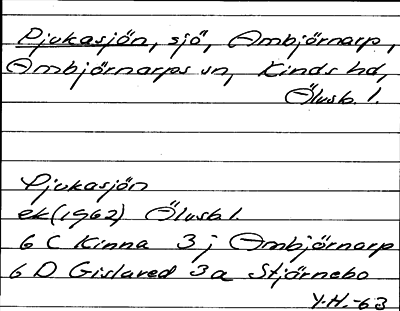 Djukasjön, sjö, Ambjörnarp,
Ambjörnarps sn, Kinds hd,
Älvsb. l.
Djukasjön
ek (1962) Älvsb l.
6 C Kinna 3 j Ambjörnarp
6 D Gislaved 3 a Stjärnebo
Y.H.-63